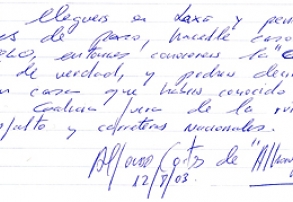 llegueis a casa y pen
es de paso, hacedle caso
entonces conocereis la "C
de verdad, y podreis deci
n casa que habeis conocido
fuera de la ru
sfalto y carreteras nacionales.
Alfonso Cortes de "Alhau
12/8/03.